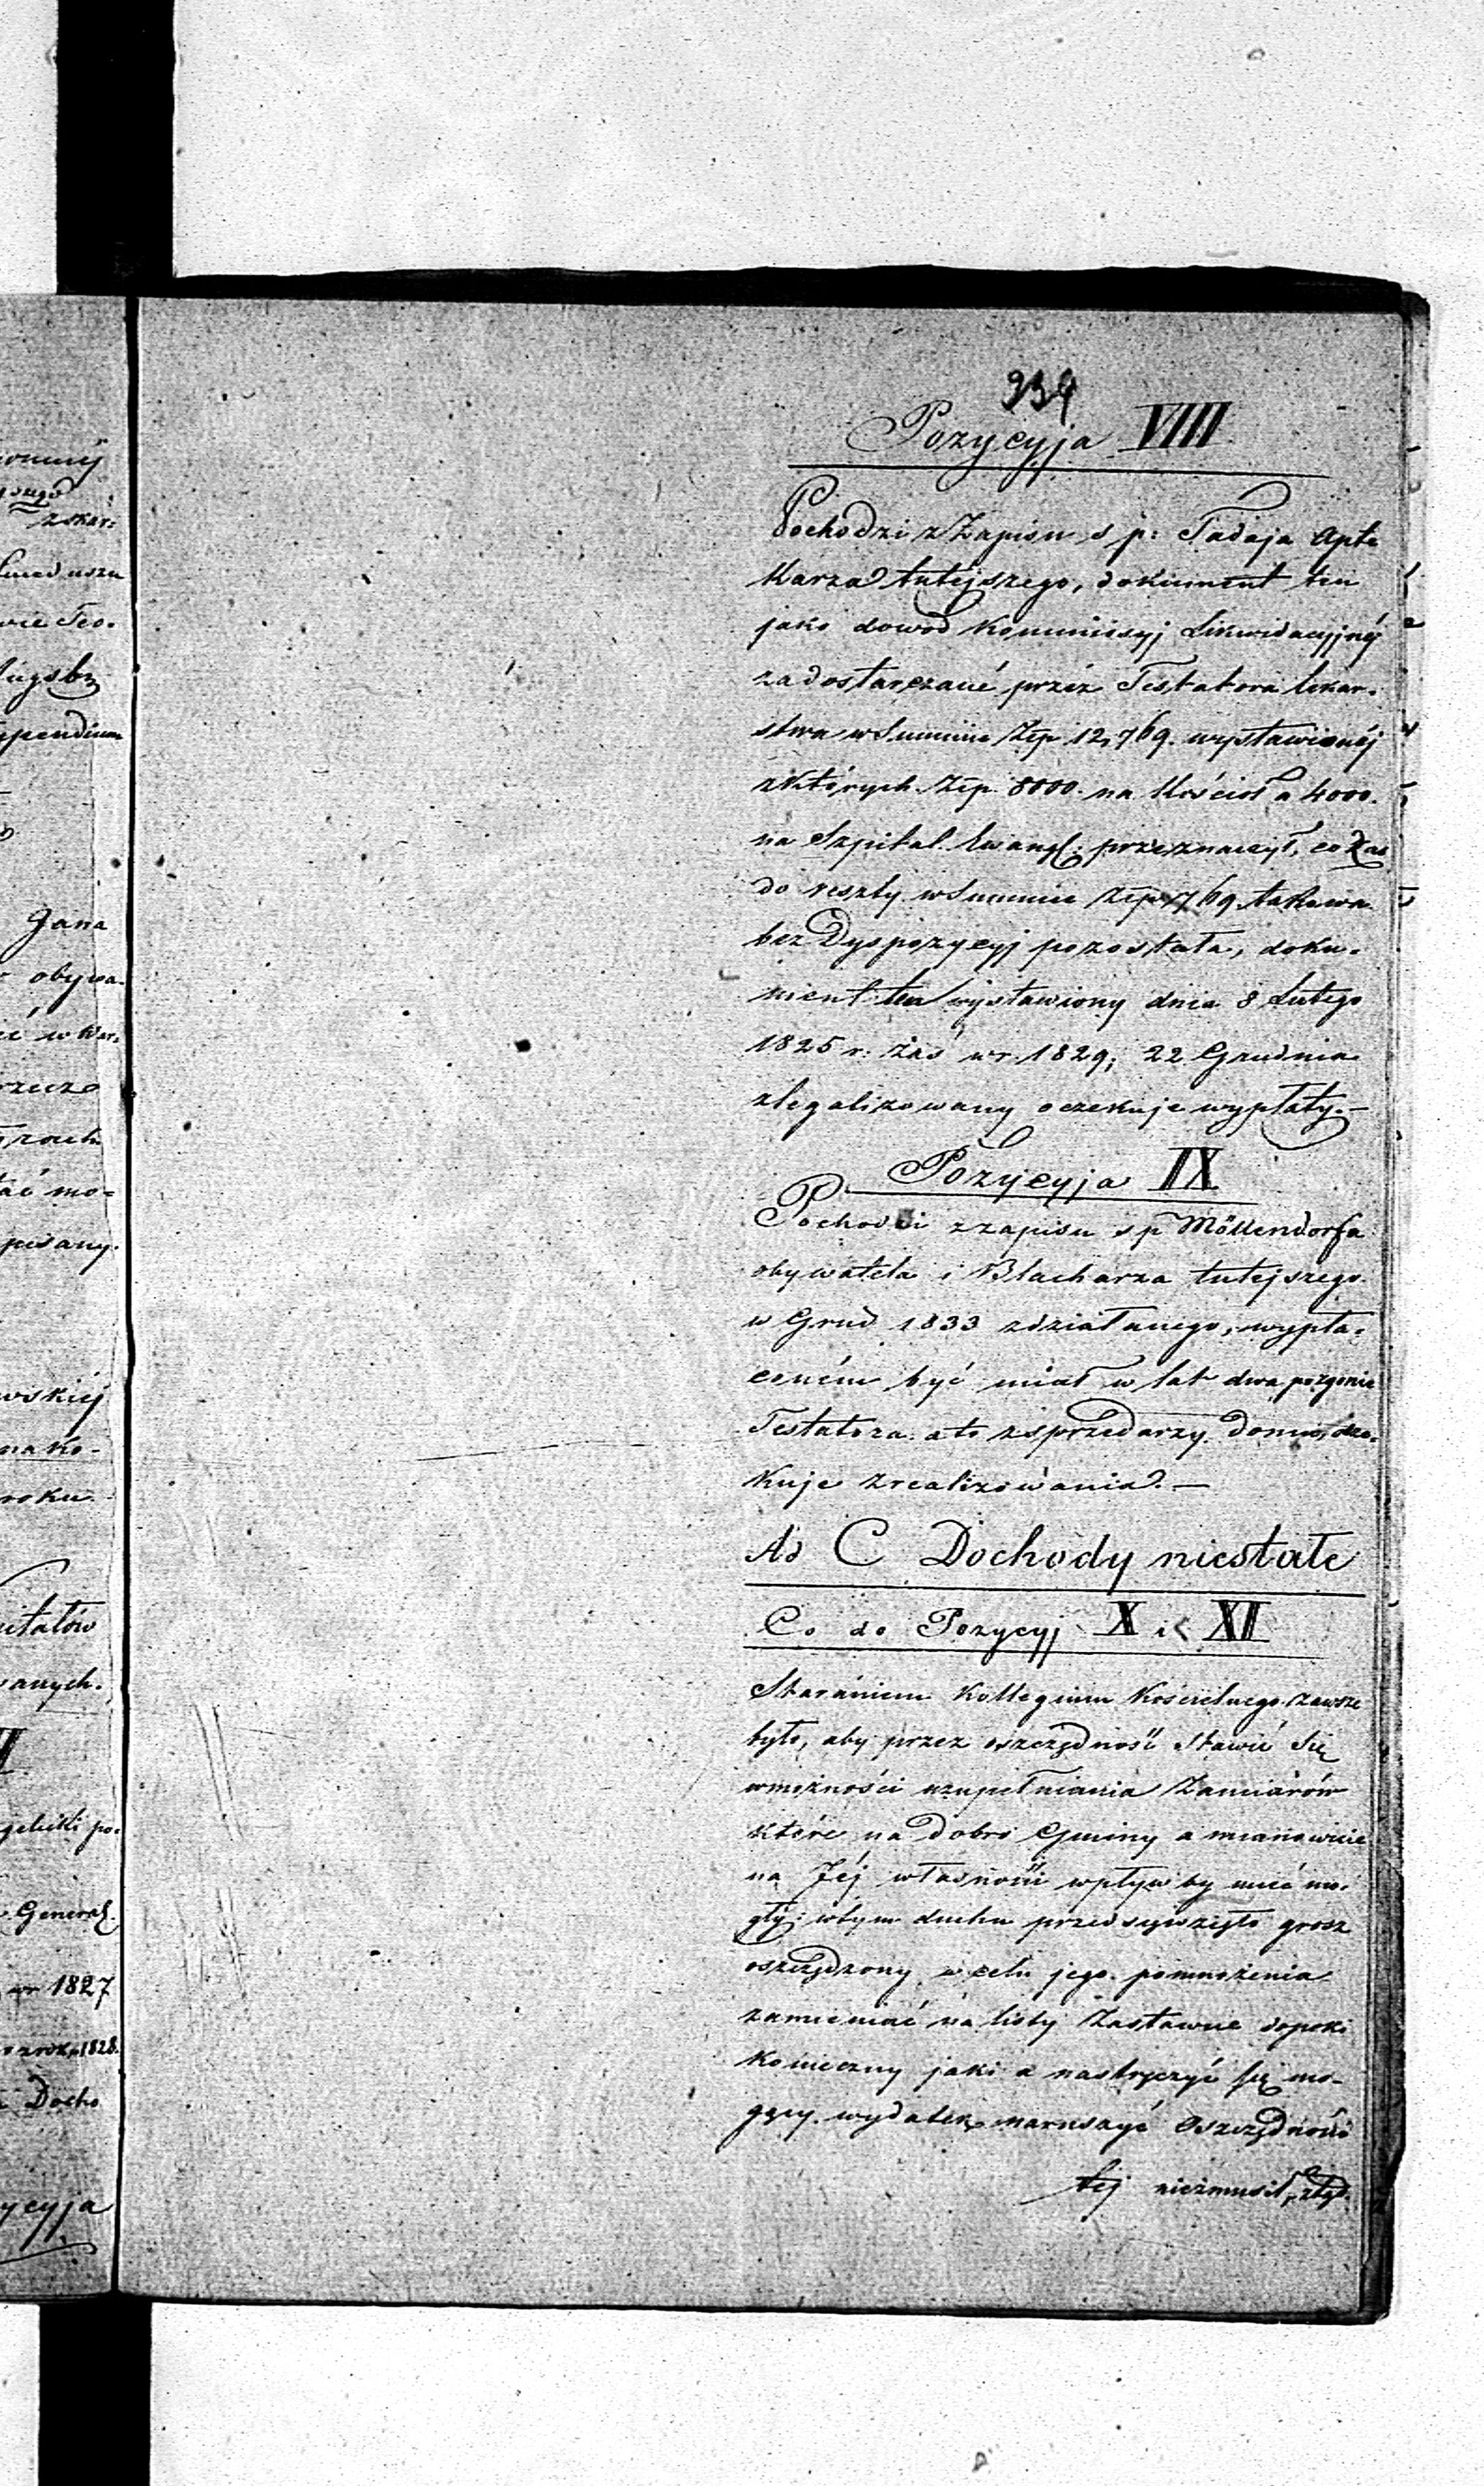 934
Pozycyja VIII
Pochodzi z Zapisu s p: Tadaja Apte
karza tutejszego, dokument ten
jako dowód Kommissyj Likwidacyjnéj
za dostarczané przéz Testatora lekar-
stwa w Summie Złp 12,769. wystawionéj
z których Złp. 8000. na Kościoł a 4000.
na Szpital. Ewangl: przeznaczył, co zas
do reszty w Summie Złp 769 takowa
bez Dyspozycyj pozostała, doku-
ment ten wystawiony dnia 8 Lutego
1825 r: Zaś w r. 1829, 22 Grudnia
zlegalizowany oczekuje wypłaty.—
Pozycyja IX
Pochodzi z zapisu s p Möllendorfa
obywatela i Blacharza tutejszego
w Grud 1833 zdziałanego, wypła-
coném być miał w lat dwa po zgonie
Testatora. a to z sprzedarzy Domu, ocze-
kuje zrealizowania.—
Ad C Dochody niestałe
Co do Pozycyj X i XI
Staraniem Kollegium Kościelnego zawsze
było, aby przez oszczędność stawić Się
w możności uzupełniania Zamiarów
które na dobro Gminy a mianowicie
na Jéj własność wpływ by mieć mo-
gły; w tym duchu przedsięwzięto grosz
oszczędzony w celu jego pomnożenia
zamieniać na listy Zastawne dopoki
konieczny jaki a nastręczyć się mo-
gący wydatek naruszyć Oszczędność
téj niezmusił,
Jana
obywa-
w 1827
Docho
ycyja